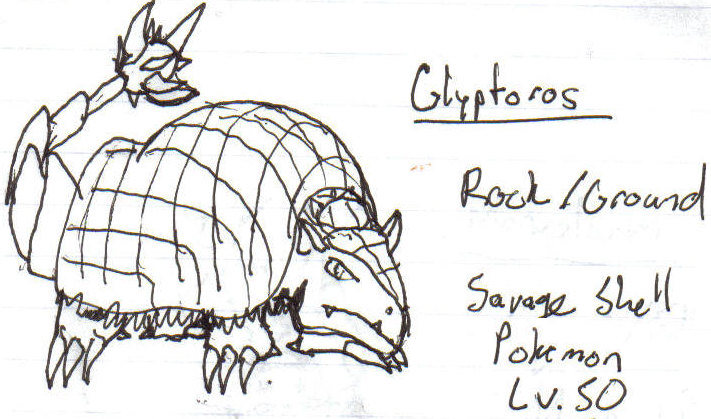 Glyptoros
Rock/Ground
Savage Shell
Pokemon
Lv. 50